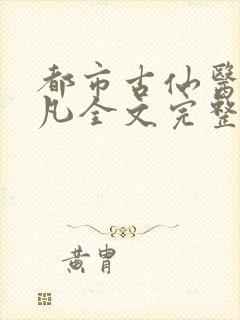 都市古仙醫
凡全文完整
黃胄